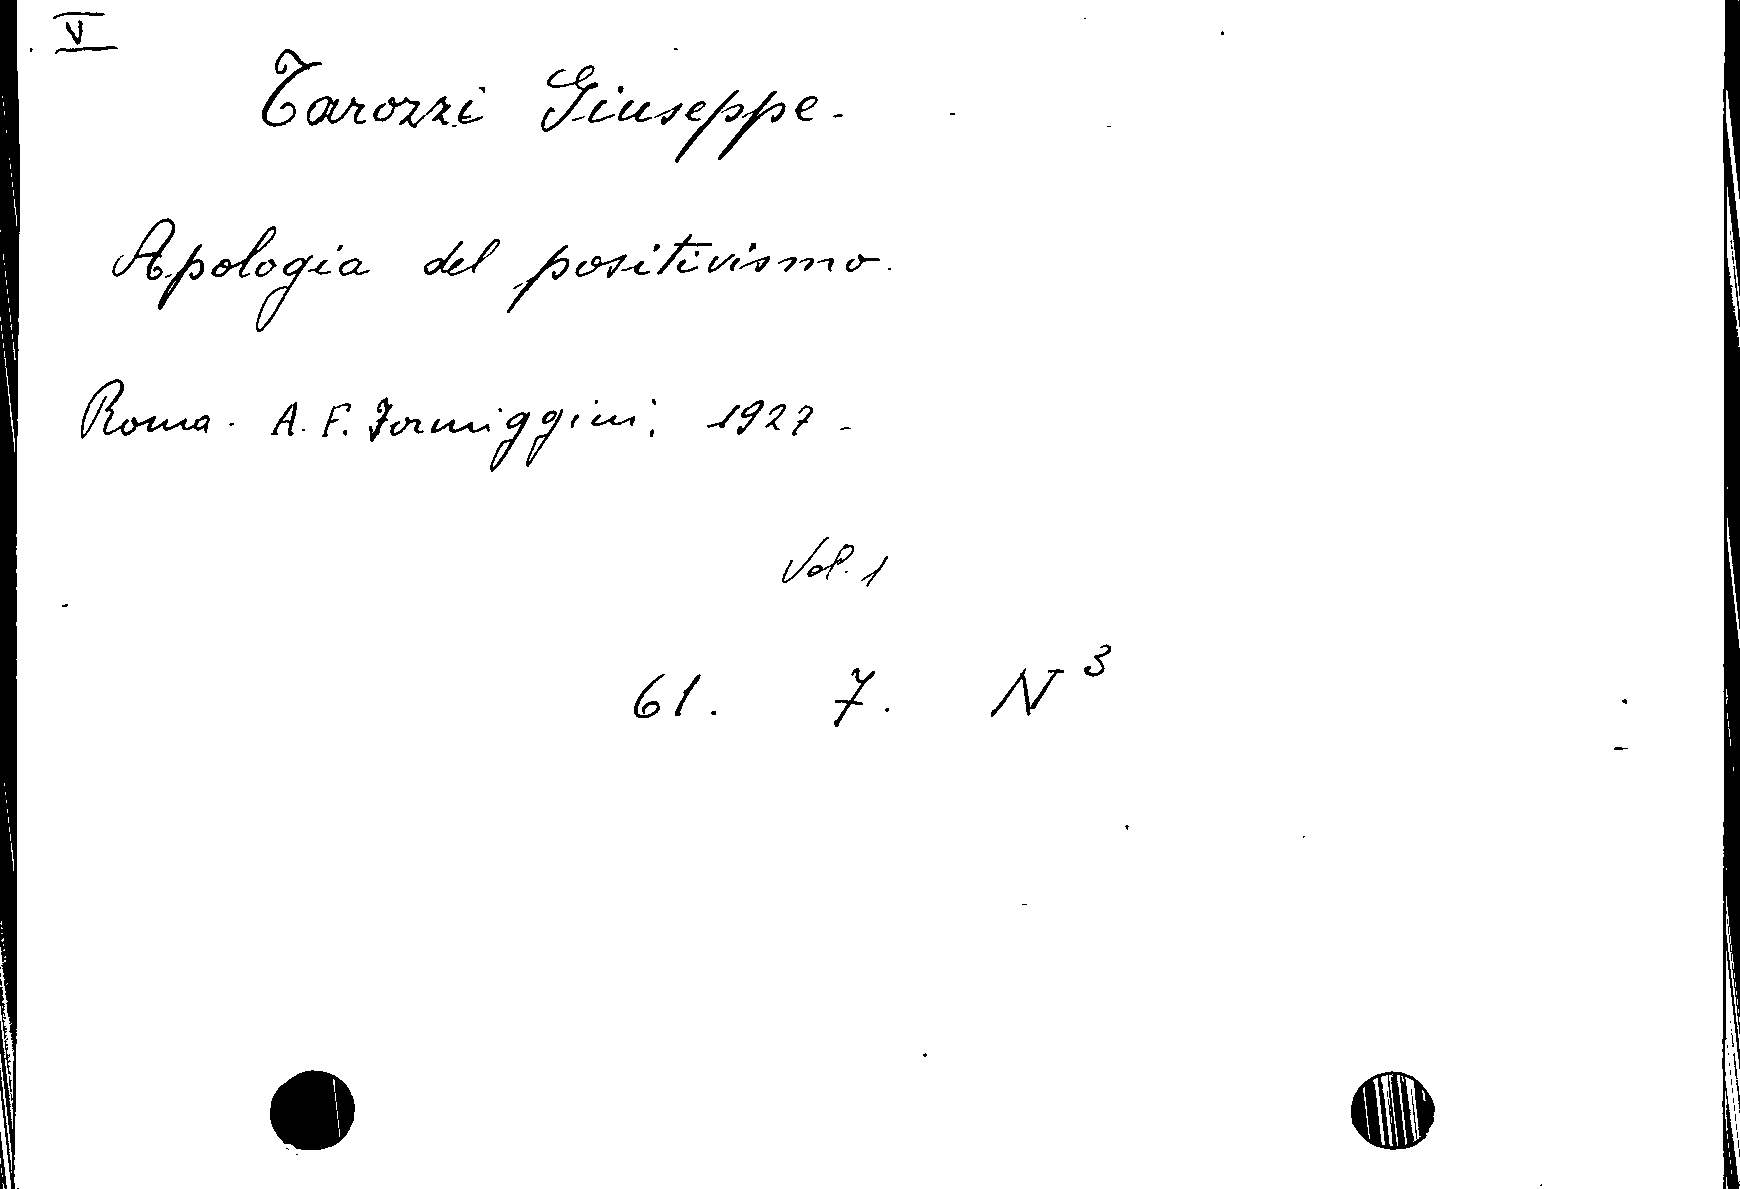 V
Tarozzi Giuseppe.
Apologia del positivismo.
Roma. A. F. Formiggini, 1927.
Vol. 1
61. 7. N³